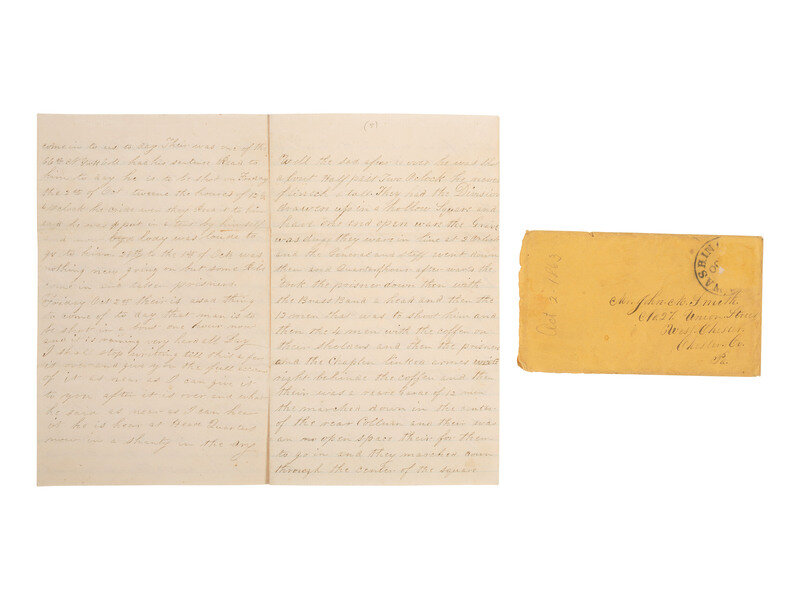 comain to us to day Their was one of the
him to day he is to be shot in Friday
the 2th of Oct twene the houres of 12 to
and he was put in a tent by himself
and no body was lou de to
go to him 29th to the 1st of Oct was
nothing new going on but some Rebs
come in and taken prisoners
Friday Oct 2th their is a sad thing
to come of to day that man is to
be shot in a bout one hour now
and it is raining very hard all Day
I shall stop writing till this afer
it now and give you the full account
of it as near as I can give it
to you after it is over and what
he said as near as I can hear
it he is hear at Head Quarters
now in a shanty in the dry
(5)
Well the sad afair is over he was shot
about half past two Oclock he never
flinsch a tall They had the Division
drawen up in a hollow Square and
have one end open ware the Grave
was dug they were in line at 2 Oclock
and the General and staff went down
then and Quarter of hour after wards the
Took the prisner down then with
the Brass Band a head and then the
12 men that was to shoot him and
then the 4 men with the coffen on
their sholders and then the prisner
and the Chaplen locked armes
right behinde the coffen and then
their was a reare Garde of 12 men
the marched down in the center
of the rear Collum and their was
an open space their for them
to go in and they marched down
through the center of the square
WASHIN
Oct 2 1863
Mr. John M. Smith.
No 27 Union Street
West Chester
Chester Co.
Pa.